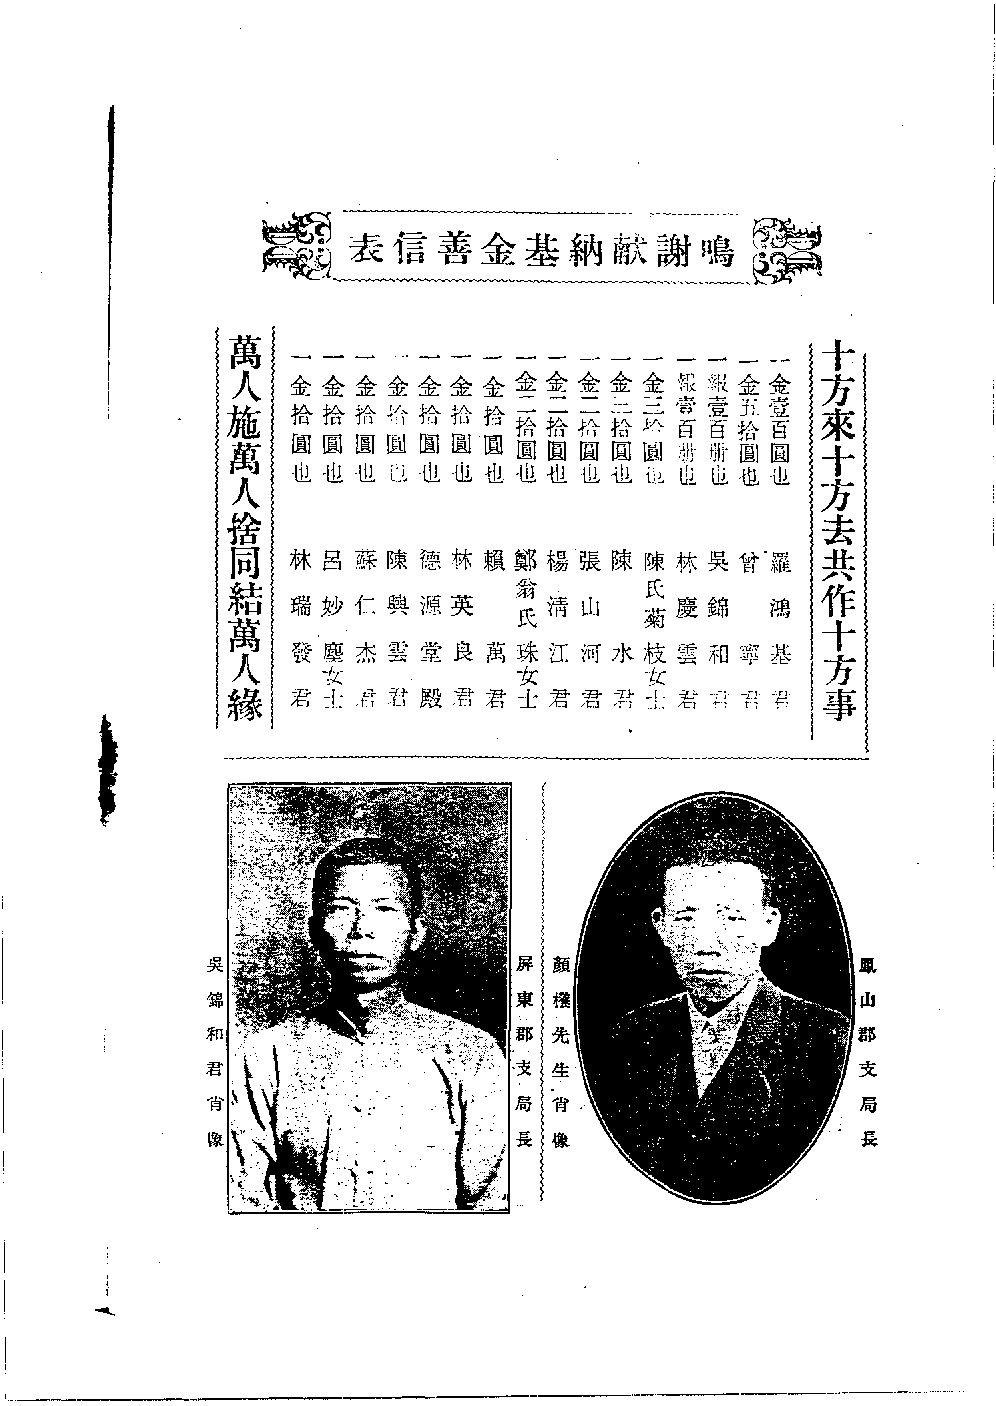 鳴謝献納基金善信表
十方來十方去共作十方事
一金壹百圓也 羅鴻基君
一金五拾圓也 曾寧君
一報壹百册也 吳錦和君
一報壹百册也 林慶雲君
一金三拾圓也 陳氏菊枝女士
一金三拾圓也 陳水君
一金二拾圓也 張山河君
一金二拾圓也 楊清江君
一金二拾圓也 鄭翁氏珠女士
一金拾圓也 賴萬君
一金拾圓也 林英良君
一金拾圓也 德源堂殿
一金拾圓也 陳興雲君
一金拾圓也 蘇仁杰君
一金拾圓也 呂妙塵女士
一金拾圓也 林瑞發君
萬人施萬人捨同結萬人緣
鳳山郡支局長
顏櫕先生肖像
屏東郡支局長
吳錦和君肖像